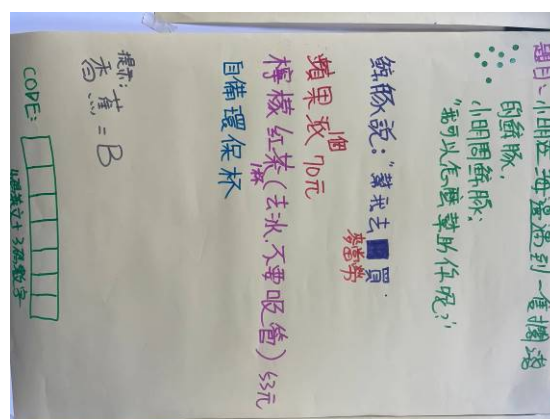 題目、小明在海邊遇到一隻擱淺
的鯨豚,
小明問鯨豚:
"我可以怎麼幫助你呢?"
鯨豚說:"幫我去 買.
麥當勞
蘋果派 1個 70元
檸檬紅茶1杯(去冰.不要吸管)53元
自備環保杯
提示:
香蕉=B
CODE:
4碼英文+3碼數字